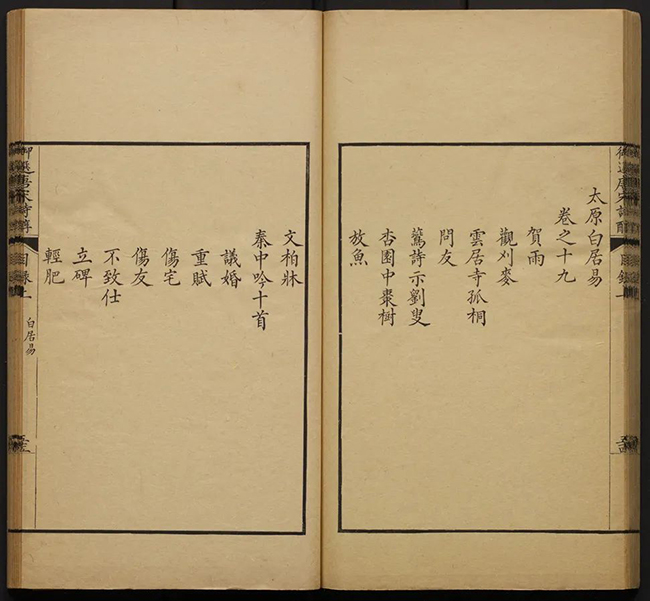 太原白居易
卷之十九
賀雨
觀刈麥
雲居寺孤桐
問友
鷰詩示劉叟
杏園中棗樹
放魚
文柏牀
秦中吟十首
議婚
重賦
傷宅
傷友
不致仕
立碑
輕肥
御選唐宋詩醇
目錄上
白居易